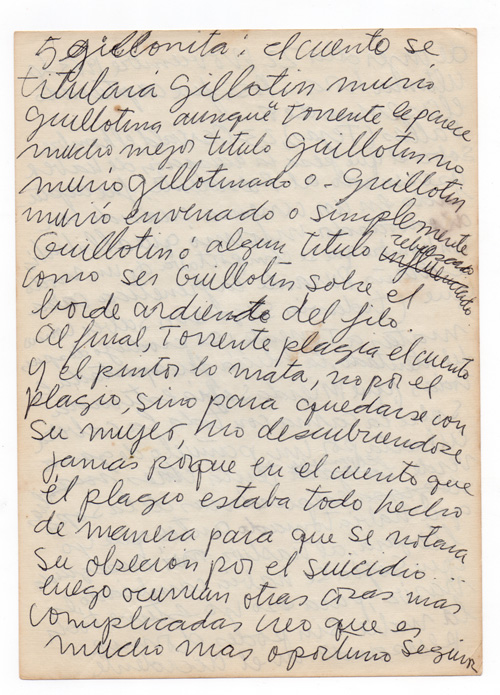 5 gillonita: el cuento se
titulará Gillotin murió
Guillotina aunque Torrente le parece
mucho mejor titulo Guillotin no
murio gillotinado o - Guillotin
murió envenado o simplemente
Guillotin ó algun titulo rebuscado
como ser Guillotin sobre el
borde ardiente del filo.
Al final, Torrente plagia el cuento
y el pintor lo mata, no por el
plagio, sino para quedarse con
su mujer, no descubriendose
jamás porque en el cuento que
él plagio estaba todo hecho
de manera para que se notara
su obsecion por el suicidio...
luego ocurrian otras cosas mas
complicadas creo que es
mucho mas oportuno seguir